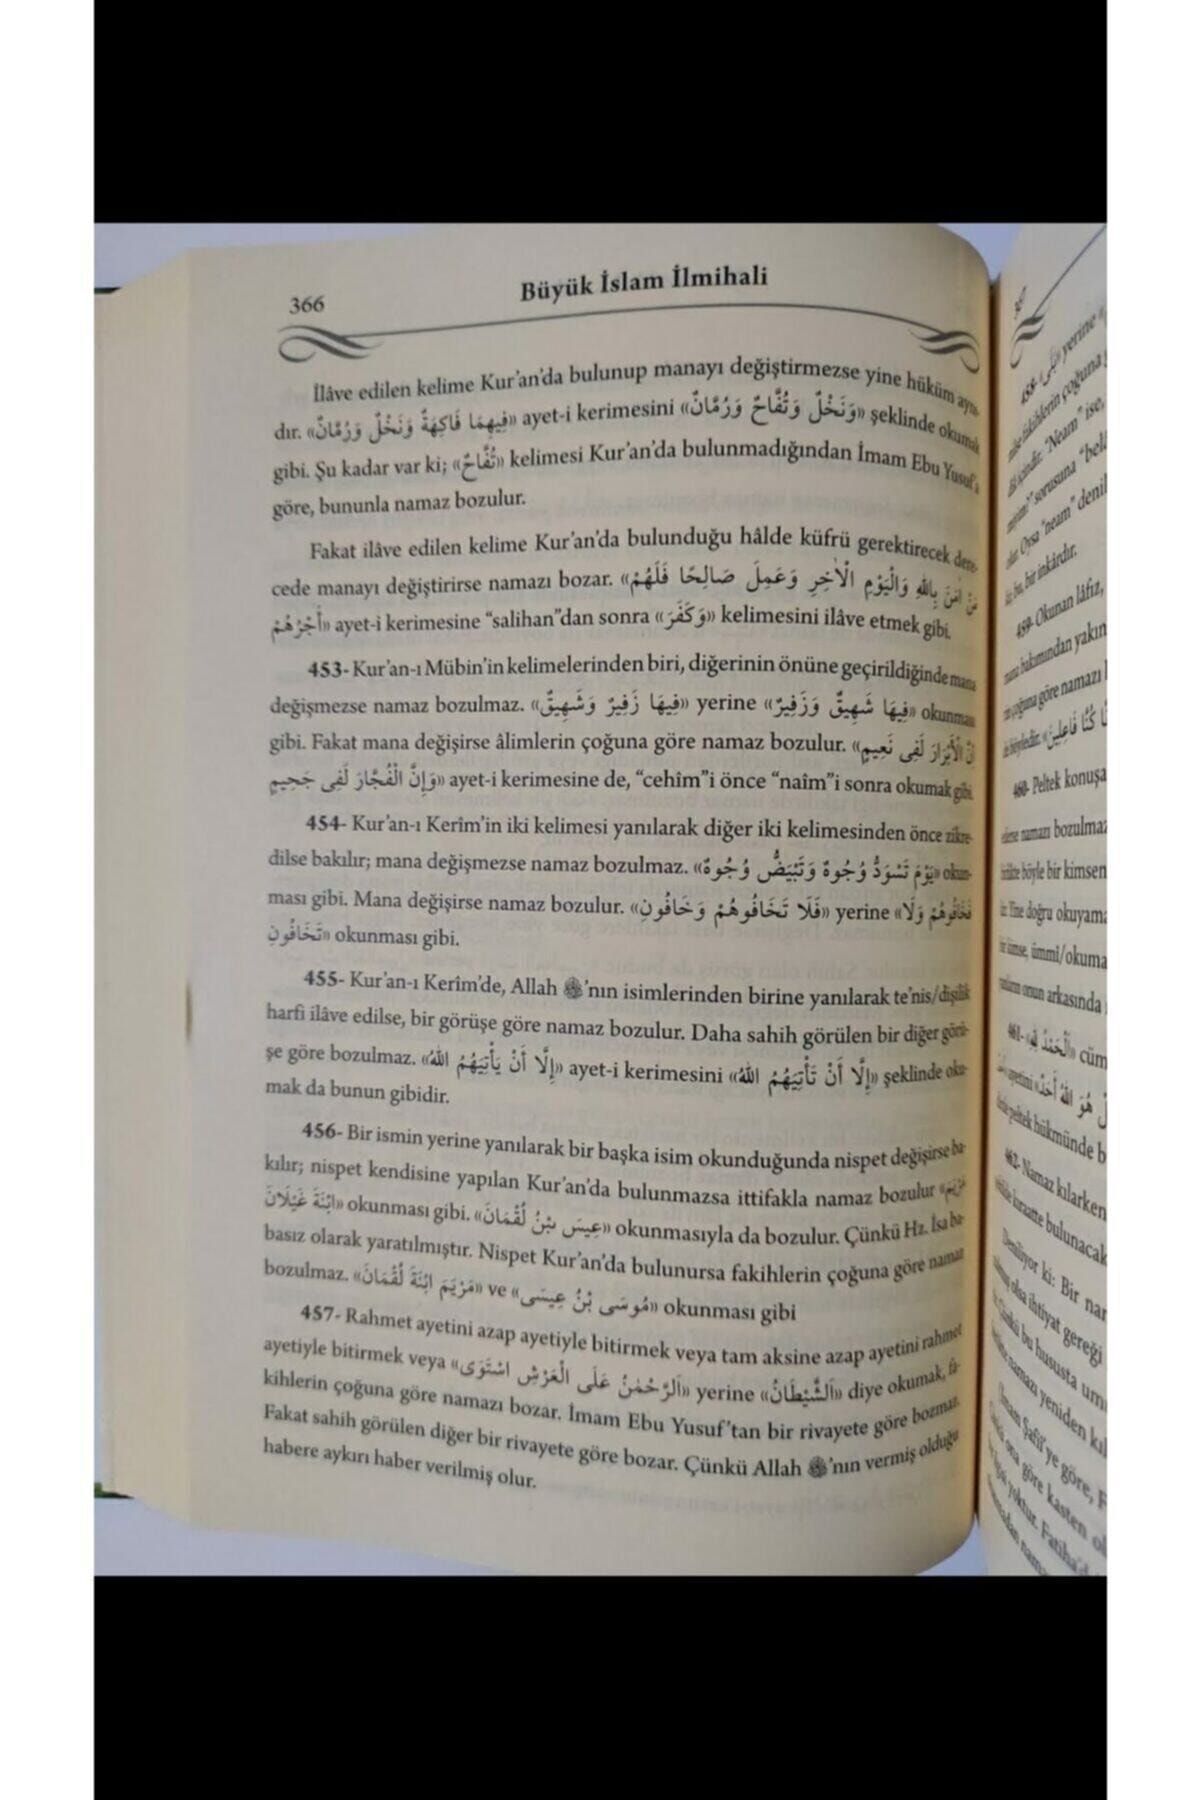 366
Büyük İslam İlmihali
İlâve edilen kelime Kur'an'da bulunup manayı değiştirmezse yine hüküm aynı-
dır. «فِيهِمَا فَاكِهَةٌ وَنَخْلٌ وَرُمَّانٌ» ayet-i kerimesini «وَنَخْلٌ وَتُفَّاحٌ وَرُمَّانٌ» şeklinde okumak
gibi. Şu kadar var ki; «تُفَّاحٌ» kelimesi Kur'an'da bulunmadığından İmam Ebu Yusuf'a
göre, bununla namaz bozulur.
Fakat ilâve edilen kelime Kur'an'da bulunduğu hâlde küfrü gerektirecek dere-
cede manayı değiştirirse namazı bozar. «مَنْ اٰمَنَ بِاللهِ وَالْيَوْمِ الْاٰخِرِ وَعَمِلَ صَالِحًا فَلَهُمْ
اَجْرُهُمْ» ayet-i kerimesine "salihan"dan sonra «وَكَفَرَ» kelimesini ilâve etmek gibi.
453- Kur'an-ı Mübin'in kelimelerinden biri, diğerinin önüne geçirildiğinde mana
değişmezse namaz bozulmaz. «فِيهَا زَفِيرٌ وَشَهِيقٌ» yerine «فِيهَا شَهِيقٌ وَزَفِيرٌ» okunması
gibi. Fakat mana değişirse âlimlerin çoğuna göre namaz bozulur. «اِنَّ الْاَبْرَارَ لَفِى نَعِيمٍ
وَاِنَّ الْفُجَّارَ لَفِى جَحِيمٍ» ayet-i kerimesine de, "cehîm"i önce "naîm"i sonra okumak gibi.
454- Kur'an-ı Kerîm'in iki kelimesi yanılarak diğer iki kelimesinden önce zikre-
dilse bakılır; mana değişmezse namaz bozulmaz. «يَوْمَ تَسْوَدُّ وُجُوهٌ وَتَبْيَضُّ وُجُوهٌ» okun-
ması gibi. Mana değişirse namaz bozulur. «فَلَا تَخَافُوهُمْ وَخَافُونِ» yerine «فَخَافُوهُمْ وَلَا
تَخَافُونِ» okunması gibi.
455- Kur'an-ı Kerîm'de, Allah ﷻ'nın isimlerinden birine yanılarak te'nis/dişilik
harfi ilâve edilse, bir görüşe göre namaz bozulur. Daha sahih görülen bir diğer görü-
şe göre bozulmaz. «اِلَّا اَنْ يَأْتِيَهُمُ اللهُ» ayet-i kerimesini «اِلَّا اَنْ تَأْتِيَهُمُ اللهُ» şeklinde oku-
mak da bunun gibidir.
456- Bir ismin yerine yanılarak bir başka isim okunduğunda nispet değişirse ba-
kılır; nispet kendisine yapılan Kur'an'da bulunmazsa ittifakla namaz bozulur «مَرْيَمَ
ابْنَةَ غَيْلَانَ» okunması gibi. «عِيسَى بْنُ لُقْمَانَ» okunmasıyla da bozulur. Çünkü Hz. İsa ba-
basız olarak yaratılmıştır. Nispet Kur'an'da bulunursa fakihlerin çoğuna göre namaz
bozulmaz. «مَرْيَمَ ابْنَةَ لُقْمَانَ» ve «مُوسَى بْنُ عِيسَى» okunması gibi
457- Rahmet ayetini azap ayetiyle bitirmek veya tam aksine azap ayetini rahmet
ayetiyle bitirmek veya «اَلرَّحْمٰنُ عَلَى الْعَرْشِ اسْتَوَى» yerine «اَلشَّيْطَانُ» diye okumak, fâ-
kihlerin çoğuna göre namazı bozar. İmam Ebu Yusuf'tan bir rivayete göre bozmaz.
Fakat sahih görülen diğer bir rivayete göre bozar. Çünkü Allah ﷻ'nın vermiş olduğu
habere aykırı haber verilmiş olur.
458- «بَلَى» yerine
fakihlerin çoğuna
"Neam" ise,
sorusuna "belâ
Oysa "neam" denil
bu, bir inkârdır.
459- Okunan lâfız,
mana bakımından yakın
çoğuna göre namazı
böyledir. كُنَّا فَاعِلِينَ»
460- Peltek konuşa
namazı bozulmaz
böyle bir kimsen
Yine doğru okuyama
kimse, ümmî/okuma
onun arkasında
461- «اَلْحَمْدُ لِلّٰهِ» cüm
ayetini هُوَ اللهُ اَحَدٌ»
peltek hükmünde b
462- Namaz kılarken
kıraatte bulunacak
Deniliyor ki: Bir nam
olsa ihtiyat gereği
Çünkü bu hususta um
namazı yeniden kıl
(İmam Şafiî'ye göre, F
ona göre kasten ol
yoktur. Fatiha'd